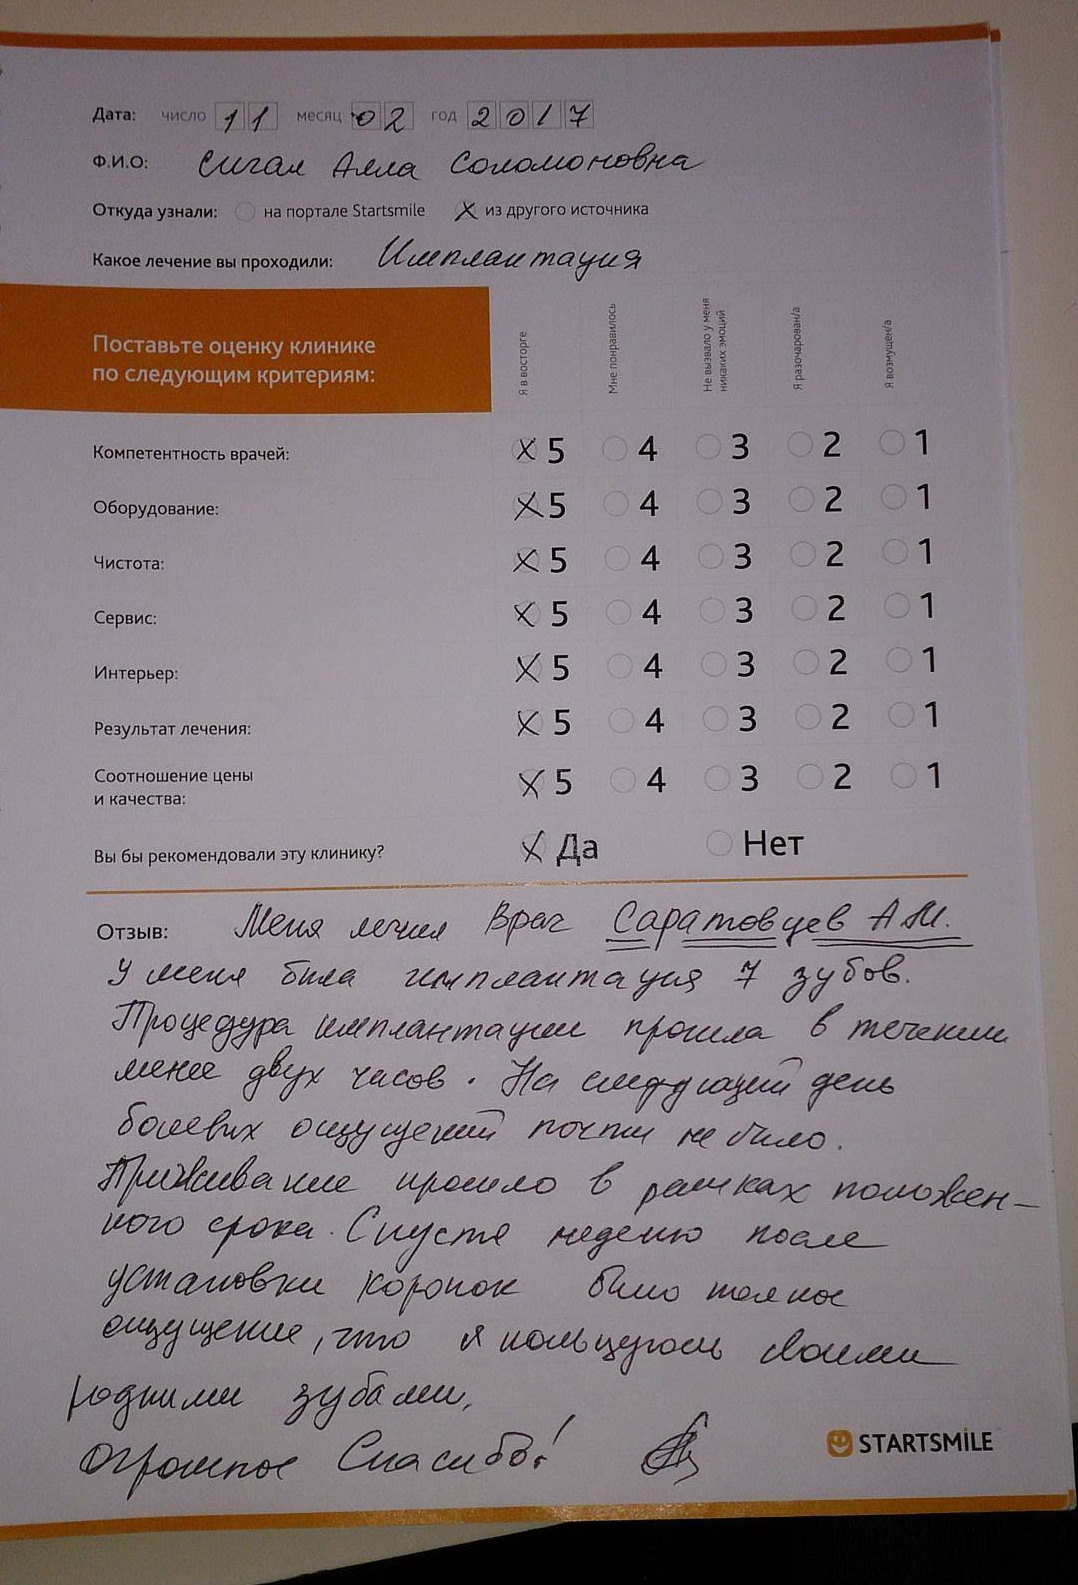 Дата: число 11 месяц 02 год 2017
Ф.И.О: Сигал Алла Соломоновна
Откуда узнали: на портале Startsmile X из другого источника
Какое лечение вы проходили: Имплантация
Поставьте оценку клинике
по следующим критериям:
Я в восторге
Мне понравилось
Не вызвало у меня
никаких эмоций
Я разочарован/а
Я возмущен/а
Компетентность врачей: X 5 4 3 2 1
Оборудование: X 5 4 3 2 1
Чистота: X 5 4 3 2 1
Сервис: X 5 4 3 2 1
Интерьер: X 5 4 3 2 1
Результат лечения: X 5 4 3 2 1
Соотношение цены
и качества: X 5 4 3 2 1
Вы бы рекомендовали эту клинику? X Да Нет
Отзыв: Меня лечил Врач Саратовцев А.М.
У меня била имплантация 7 зубов.
Процедура имплантации прошла в течении
менее двух часов. На следующий день
болевих ощущений почти не било.
Приживание прошло в рамках положен-
ного срока. Спустя неделю после
установки коронок било полное
ощущение, что я пользуюсь своими
родними зубами.
Огромное Спасибо!
STARTSMILE